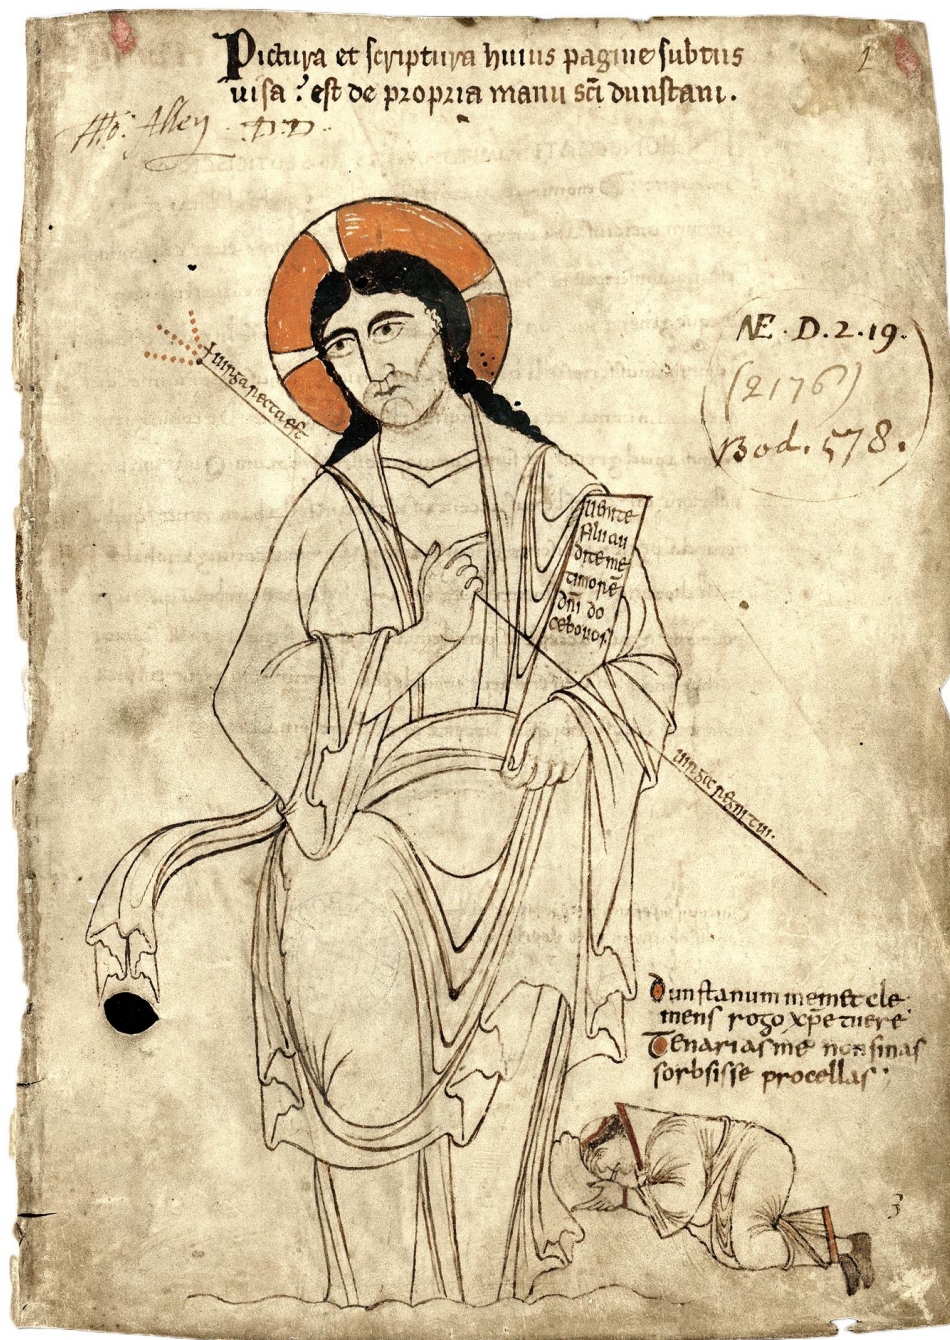 Pictura et scriptura huius pagine subtus
uisa : est de propria manu sc̄i dunstani.
1
Tho: Allen D.D.
NE. D. 2. 19.
(2176)
Bod. 578.
+uirga recta est
uenite
filii au
dite me
timorē
dn̄i do
cebo uos
uirga regni tui.
Dunstanum memet cle
mens rogo xp̄e tuere
Tenarias me non sinas
sorbsisse procellas;
3